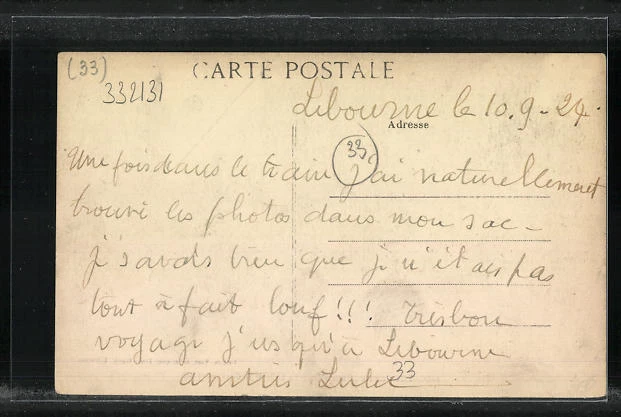 (33)
CARTE POSTALE
332131
Libourne le 10.9-24.
Adresse
33
Une fois dans le train j'ai naturellement
trouvé les photos dans mon sac -
j'savais bien que j'n'étais pas
tout à fait louf!!! Très bon
voyage j'usqu'à Libourne
amitiés
33